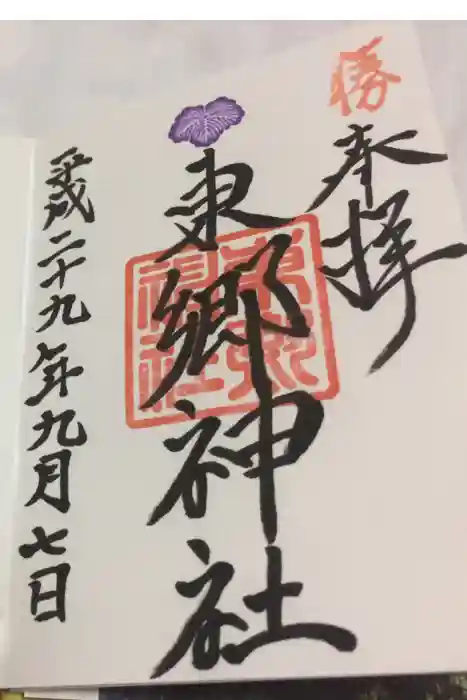 勝
奉拝
東郷神社
東郷神社
平成二十九年九月七日